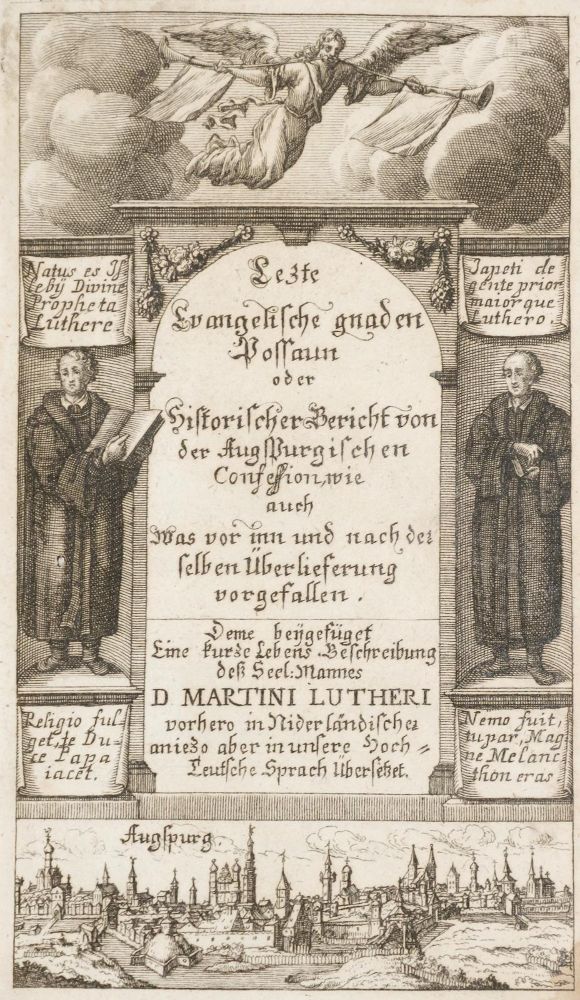 Natus es Js
lebÿ Divine
Propheta
Luthere
Japeti de
gente prior
maiorque
Luthero.
Lezte
Evangelische gnaden
Possaun
oder
Historischer Bericht von
der Augspurgischen
Confession, wie
auch
Was vor inn und nach der
selben Überlieferung
vorgefallen.
Deme beÿgefüget
Eine kurze Lebens Beschreibung
deß Seel: Mannes
D MARTINI LUTHERI
vorhero in Niderländischer
aniezo aber in unsere Hoch=
Teutsche Sprach Übersetzet.
Religio ful-
get, te Du-
ce Papa
iacet.
Nemo fuit,
tu par, Mag
ne Melanc
thon eras-
Augspurg